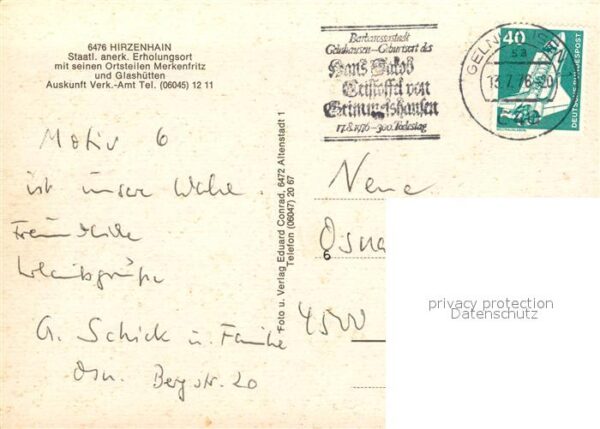 6476 HIRZENHAIN
Staatl. anerk. Erholungsort
mit seinen Ortsteilen Merkenfritz
und Glashütten
Auskunft Verk.-Amt Tel. (06045) 12 11
Barbarossastadt
Gelnhausen-Geburtsort des
Hans Jakob
Christoffel von
Grimmelshausen
17.8.1976-300. Todestag
13.7.76
40
DEUTSCHE BUNDESPOST
Motiv 6
ist unsere Wahl.
Freundliche
Urlaubsgrüße
G. Schick u. Familie
Osn. Bergstr. 20
Foto u. Verlag Eduard Conrad, 6472 Altenstadt 1
Telefon (06047) 20 67
Neue
Osna
6
4500
privacy protection
Datenschutz